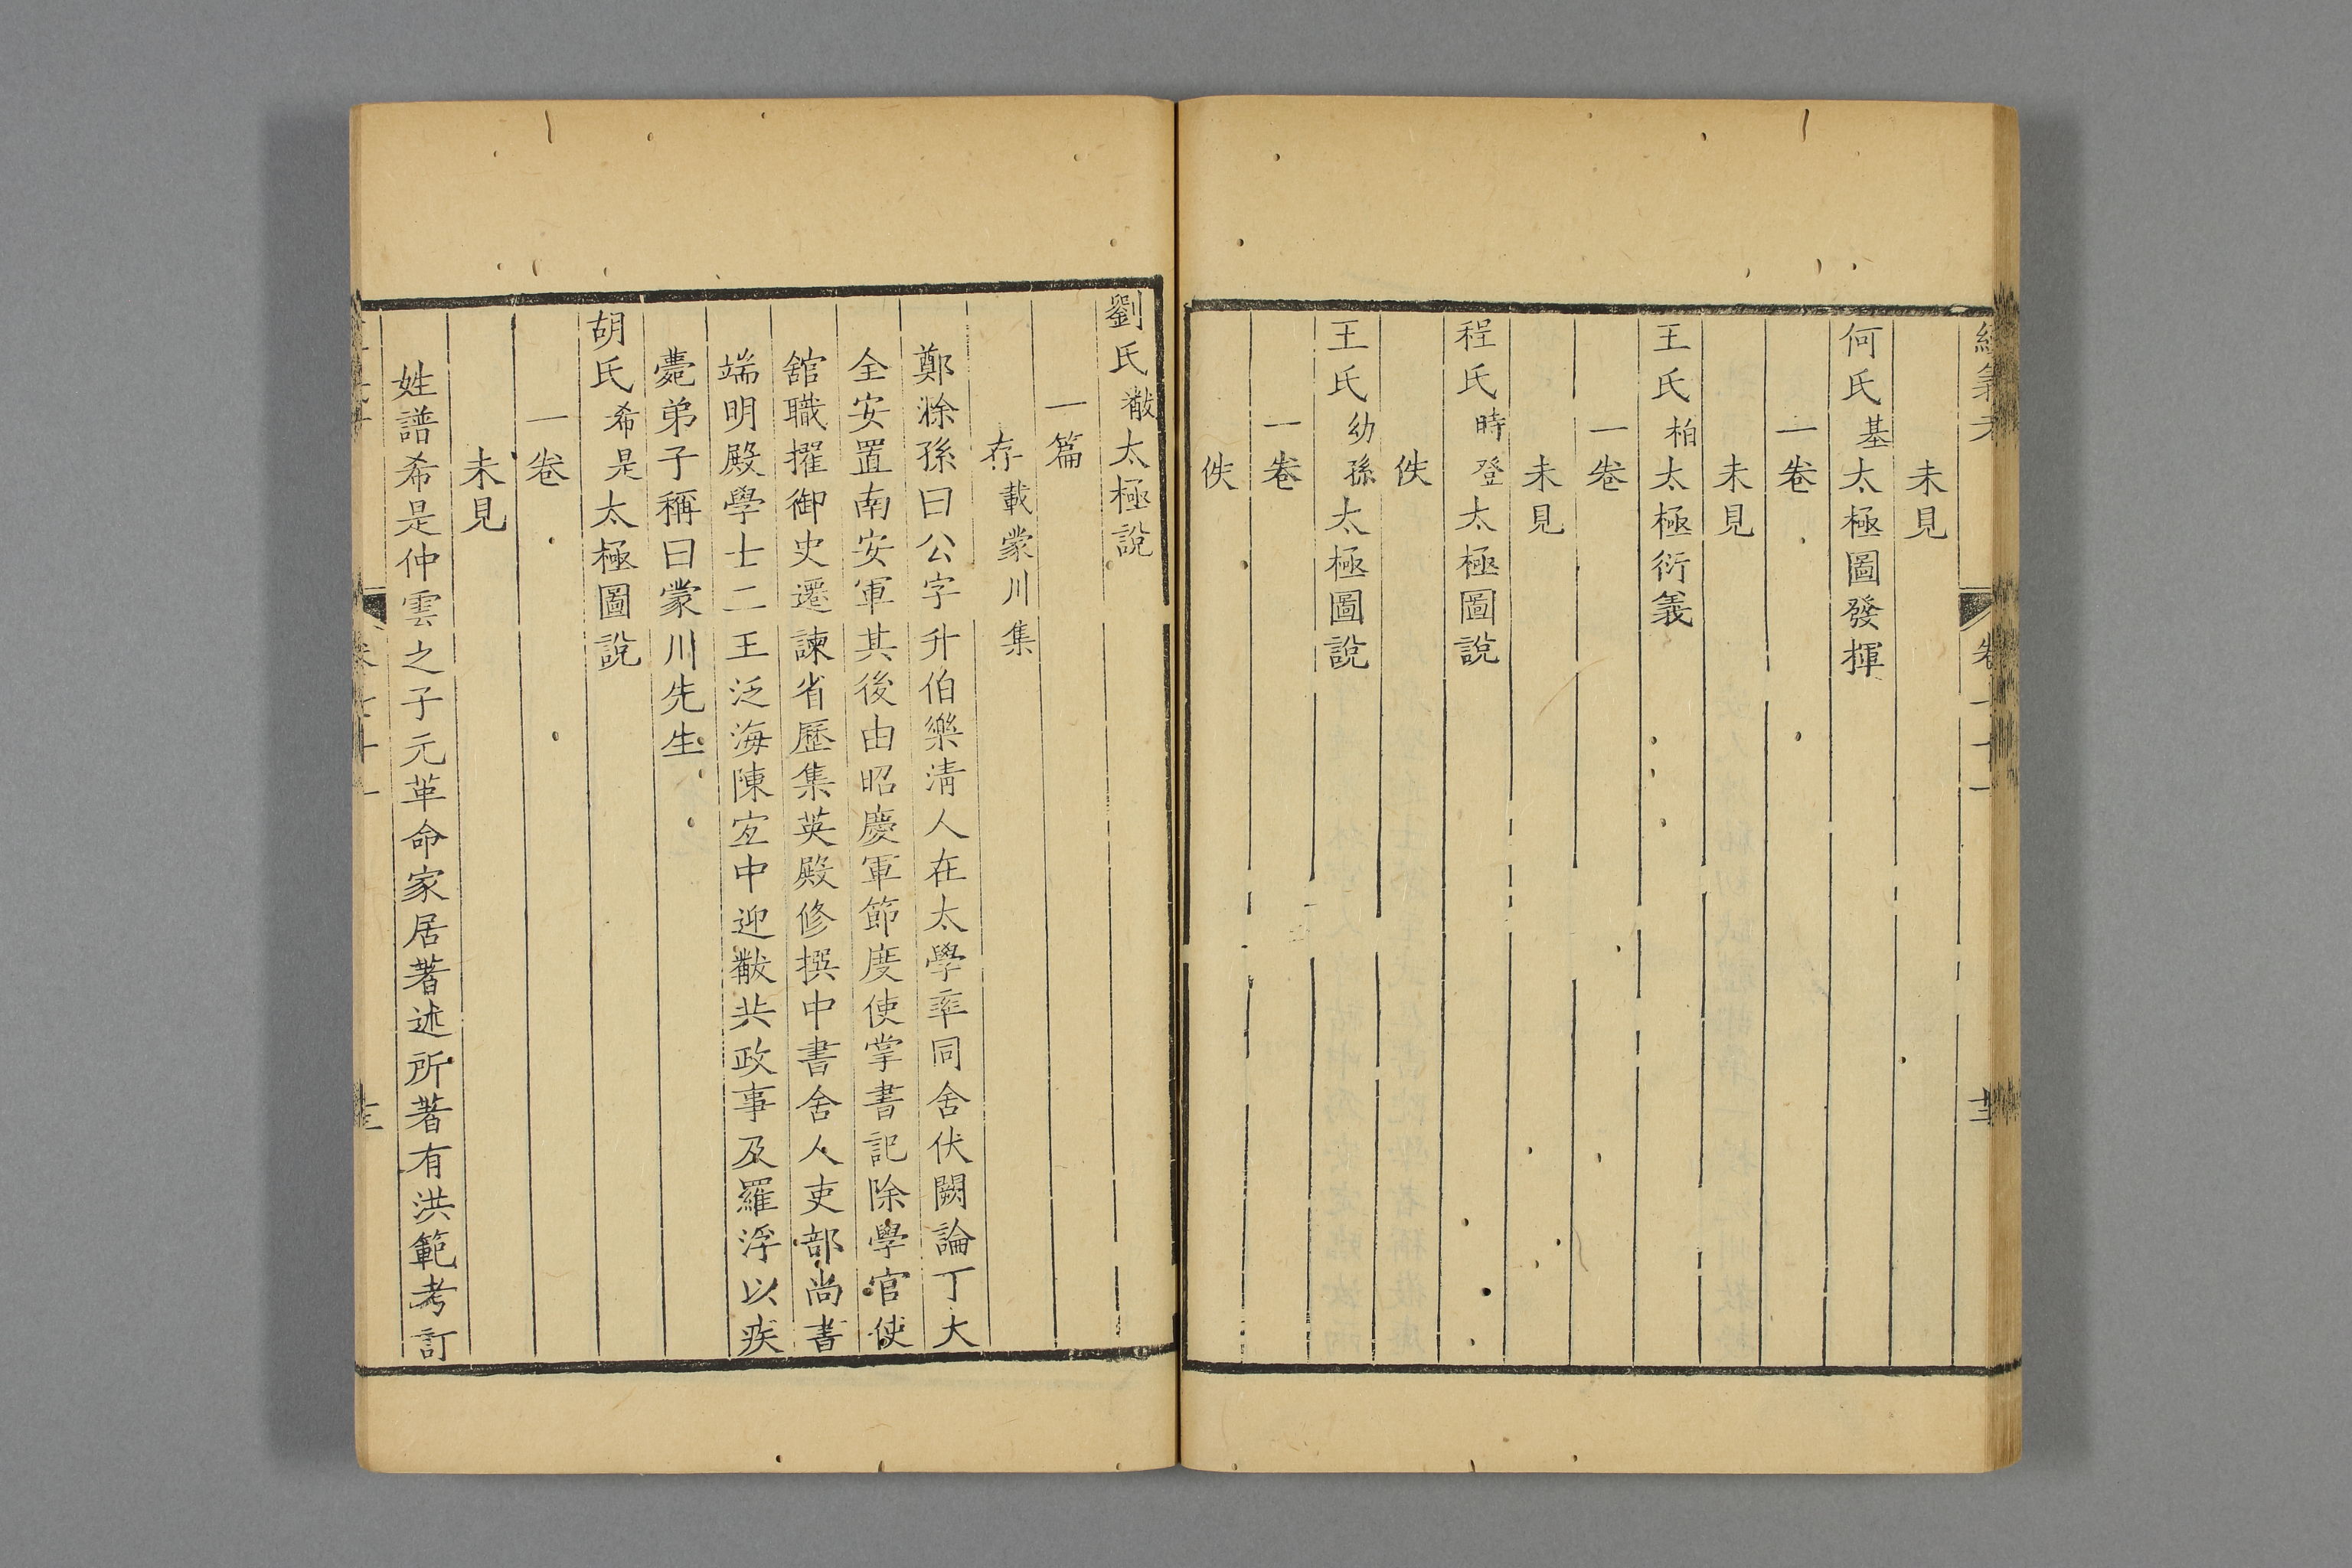 未見
何氏基太極圖發揮
一卷
未見
王氏柏太極衍義
一卷
未見
程氏時登太極圖說
佚
王氏幼孫太極圖說
一卷
佚
劉氏黻太極說
一篇
存載蒙川集
鄭滁孫曰公字升伯樂淸人在太學率同舍伏闕論丁大
全安置南安軍其後由昭慶軍節度使掌書記除學官使
舘職擢御史遷諫省歷集英殿修撰中書舍人吏部尚書
端明殿學士二王泛海陳宐中迎黻共政事及羅浮以疾
薨弟子稱曰蒙川先生
胡氏希是太極圖說
一卷
未見
姓譜希是仲雲之子元革命家居著述所著有洪範考訂